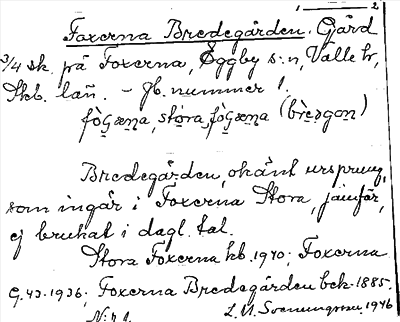 1 2
Foxerna Bredegården. Gård
3/4 sk. på Foxerna, Eggby s:n, Valle hd,
Skb. län. - Jb. nummer 1.
fò̱gæṇa, stóra fò̱gæṇa (brèdgɔṇ)
Bredegården, okänt ursprung,
som ingår i Foxerna Stora, jämför,
ej brukat i dagl. tal.
Stora Foxerna kb. 1940; Foxerna
G. 43. 1936; Foxerna Bredegården bek. 1885.
L. M. 1946